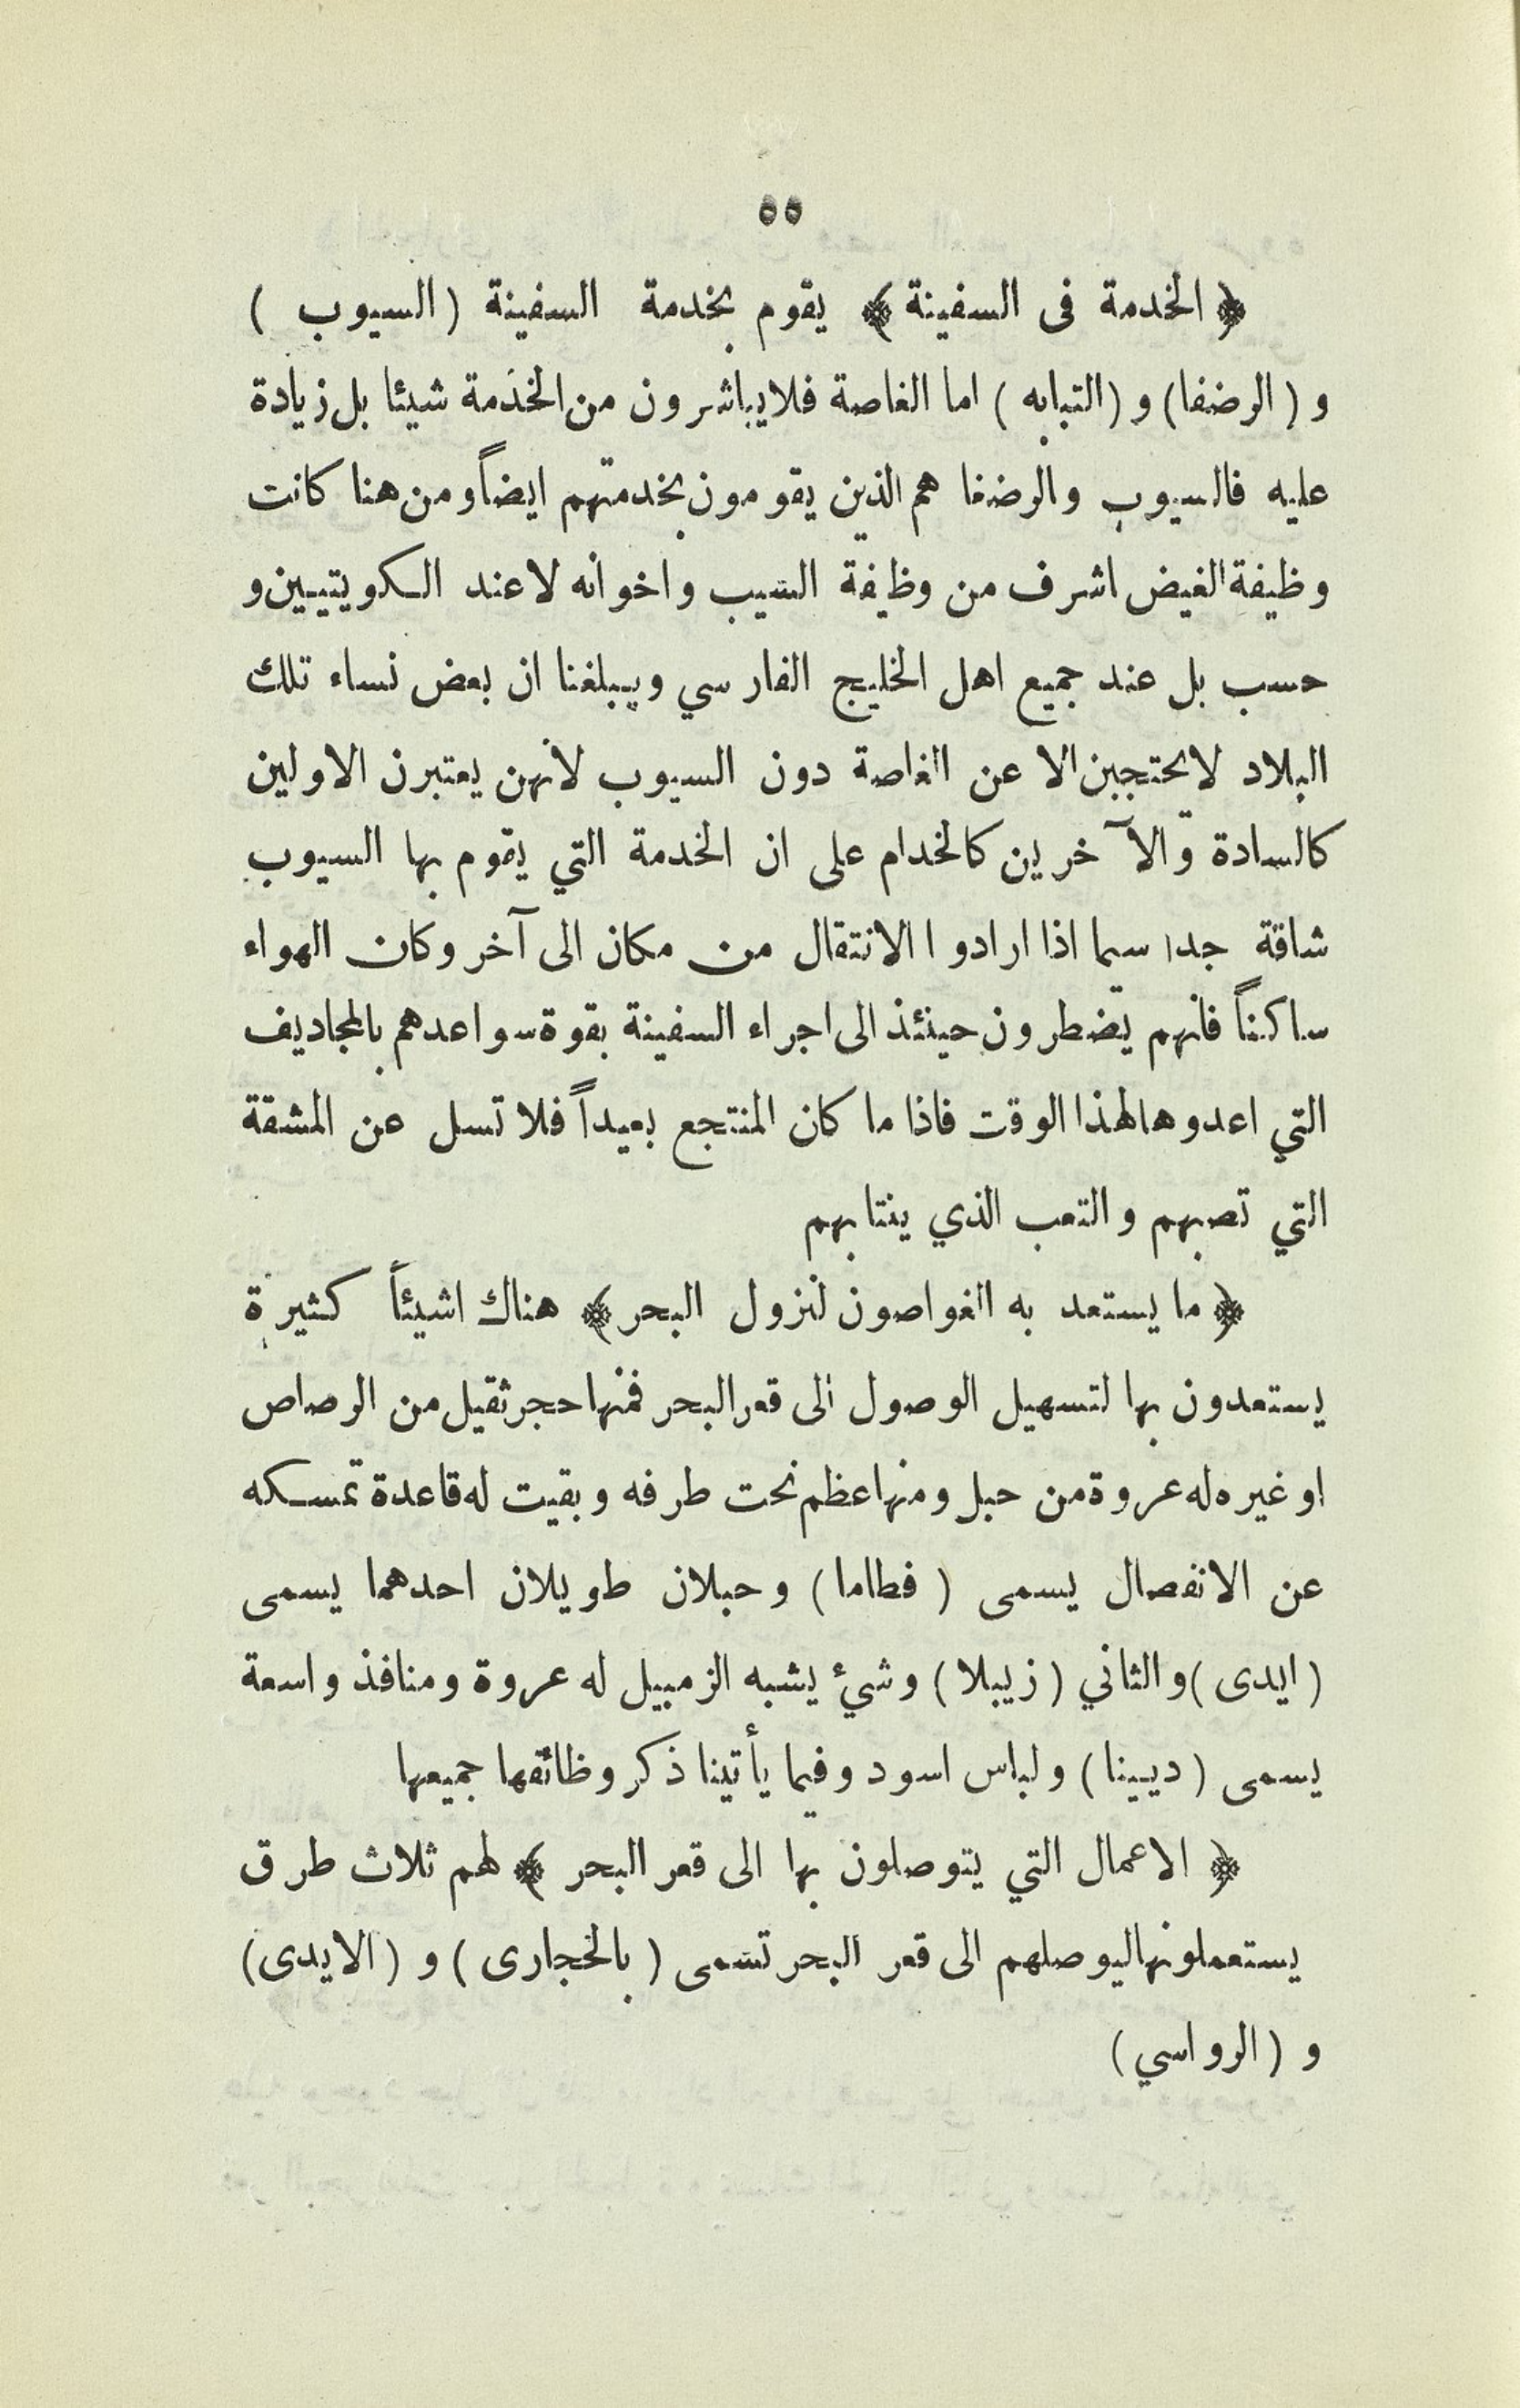 ٥٥
﴿ الخدمة فى السفينة ﴾ يقوم بخدمة السفينة (السيوب )
و (الرضفا) و (التبابه ) اما الغاصة فلا يباشرون من الخدمة شيئا بل زيادة
عليه فالسيوب والرضفا هم الذين يقومون بخدمتهم ايضاً ومن هنا كانت
وظيفة الغيض اشرف من وظيفة السيب واخوانه لا عند الكويتيين و
حسب بل عند جميع اهل الخليج الفارسي ويبلغنا ان بعض نساء تلك
البلاد لا يحتجبن الا عن الغاصة دون السيوب لأنهن يعتبرن الاولين
كالسادة والآخرين كالخدام على ان الخدمة التي يقوم بها السيوب
شاقة جدا سيما اذا ارادوا الانتقال من مكان الى آخر وكان الهواء
ساكناً فانهم يضطرون حينئذ الى اجراء السفينة بقوة سواعدهم بالمجاديف
التي اعدوها لهذا الوقت فاذا ما كان المنتجع بعيداً فلا تسل عن المشقة
التي تصبهم والتعب الذي ينتابهم
﴿ ما يستعد به الغواصون لنزول البحر ﴾ هناك اشيئاً كثيرة
يستعدون بها لتسهيل الوصول الى قعر البحر فمنها حجر ثقيل من الرصاص
او غيره له عروة من حبل ومنها عظم نحت طرفه وبقيت له قاعدة تمسكه
عن الانفصال يسمى ( فطاما ) وحبلان طويلان احدهما يسمى
( ايدى ) والثاني ( زيبلا ) وشئ يشبه الزمبيل له عروة ومنافذ واسعة
يسمى ( ديينا ) ولباس اسود وفيما يأتينا ذكر وظائفها جميعها
﴿ الاعمال التي يتوصلون بها الى قعر البحر ﴾ لهم ثلاث طرق
يستعملونها ليوصلهم الى قعر البحر تسمى ( بالحجارى ) و ( الايدى)
و ( الرواسي )